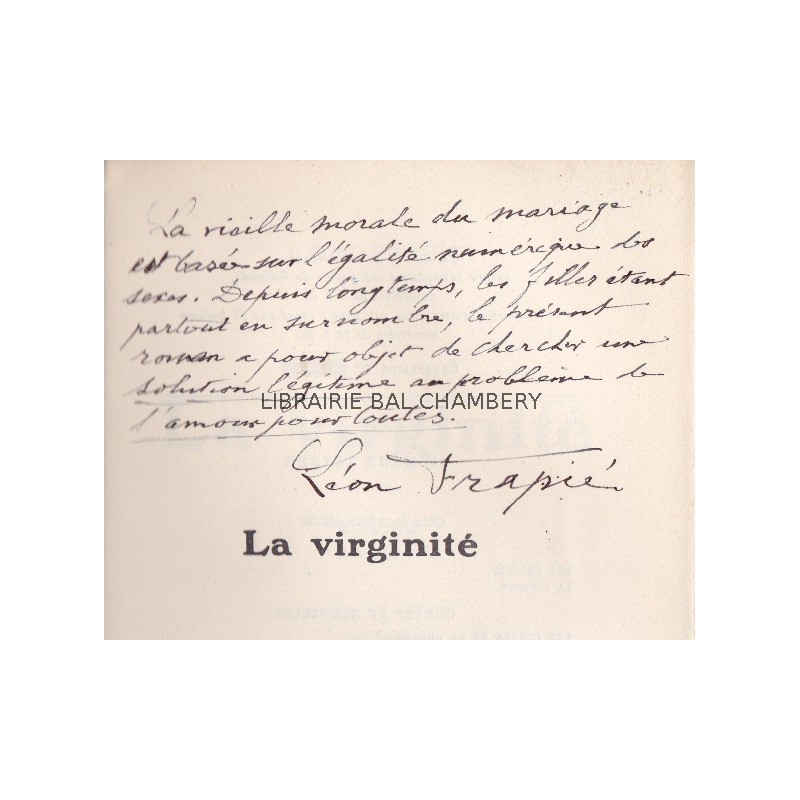 La vieille morale du mariage
est basée sur l'égalité numérique des
sexes. Depuis longtemps, les filles étant
partout en surnombre, le présent
roman a pour objet de chercher une
solution légitime au problème de
LIBRAIRIE BAL CHAMBERY
l'amour pour toutes.
Léon Frapié
La virginité